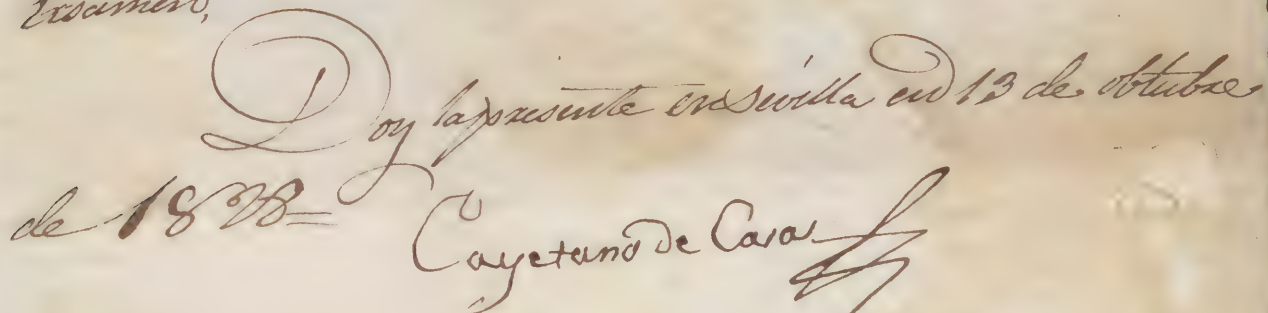 Exsamen,
Doy la presente en Sevilla en 13 de obtubre
de 1828=
Cayetano de Casas